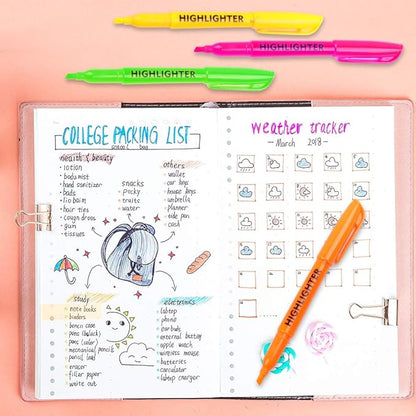 HIGHLIGHTER
HIGHLIGHTER
HIGHLIGHTER
COLLEGE PACKING LIST
school bag
health & beauty
lotion
body mist
hand sanitizer
bads
lip balm
hair ties
cough drops
gum
tissues
snacks
pocky
fruits
water
others
wallet
car keys
house keys
umbrella
planner
tide pen
cash
study
note books
binders
pencil case
pens (black)
pens (color)
mechanical pencil
pencil lead
eraser
filler paper
white out
electronics
laptop
phone
earbuds
external battery
apple watch
wireless mouse
batteries
calculator
laptop charger
weather tracker
- March 2018 -
HIGHLIGHTER